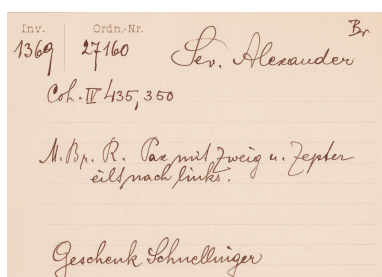 Inv. Ordn.-Nr. Br
1369 27160 Sev. Alexander
Coh. IV 435, 350
M. Br. R. Pax mit Zweig u. Zepter
eilt nach links.
Geschenk Schnellinger